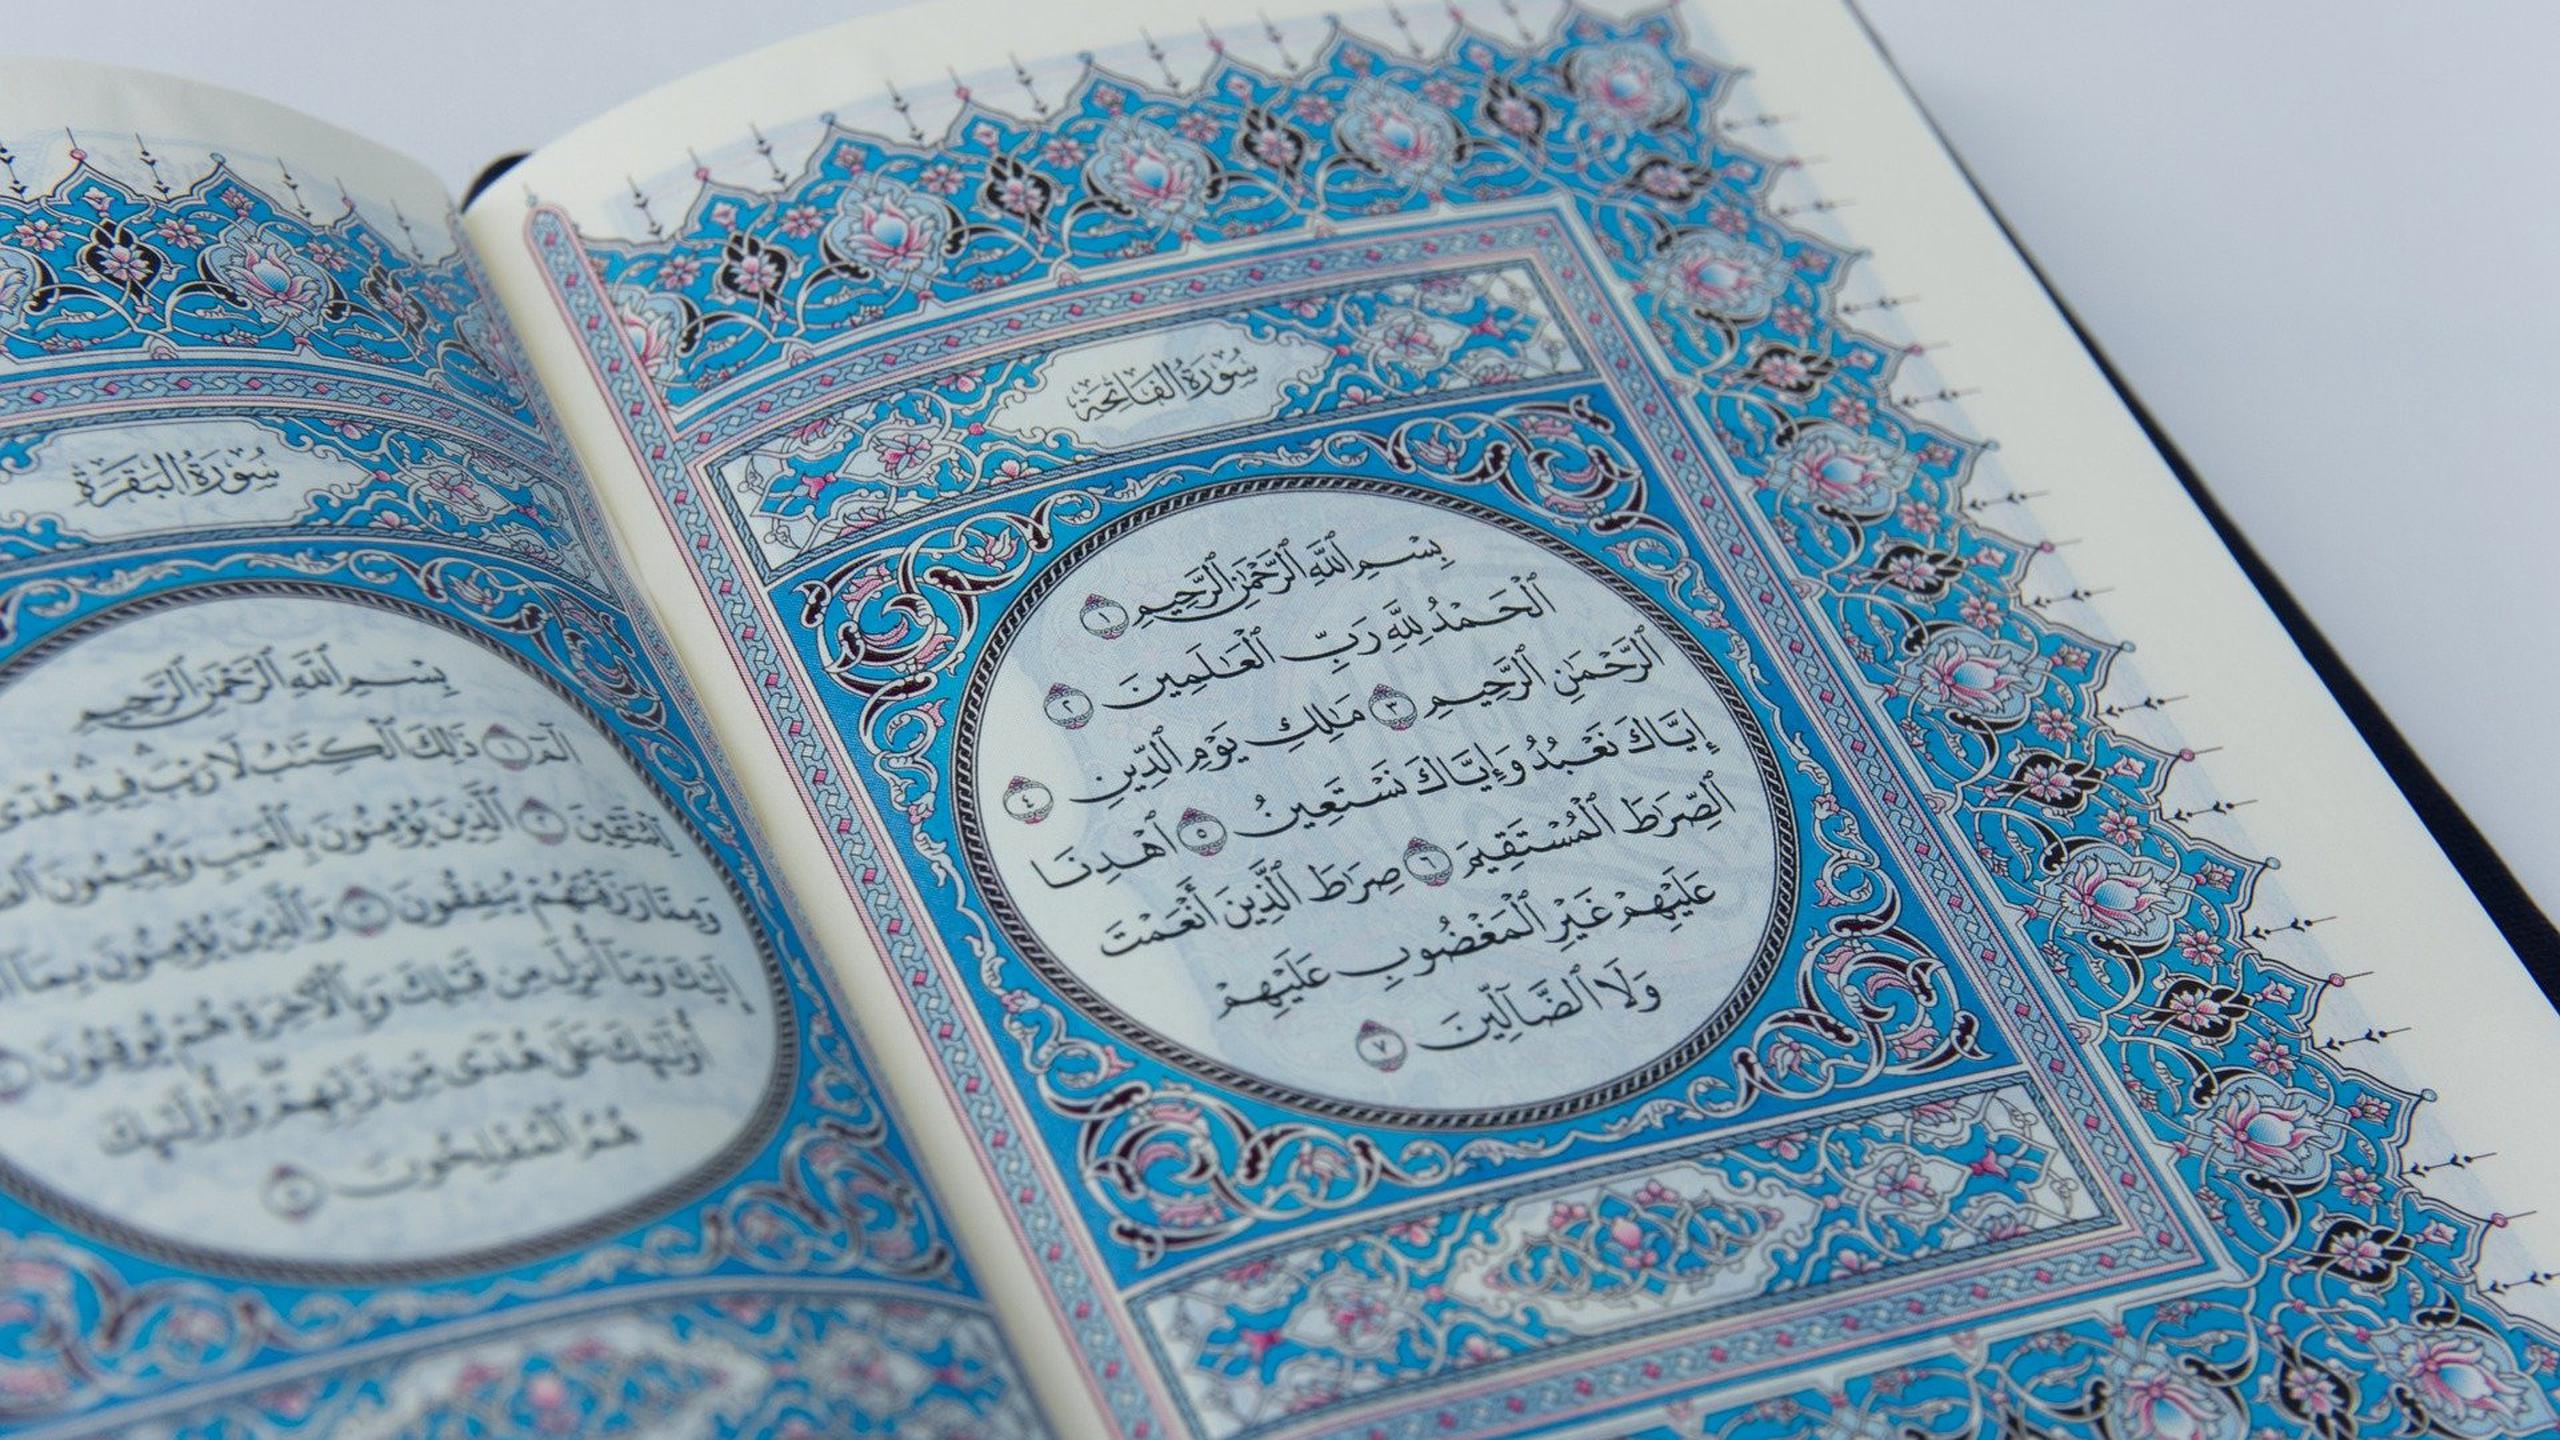 سُورَةُ الفَاتِحَةِ
بِسْمِ ٱللَّهِ ٱلرَّحْمَٰنِ ٱلرَّحِيمِ ١
ٱلْحَمْدُ لِلَّهِ رَبِّ ٱلْعَٰلَمِينَ ٢
ٱلرَّحْمَٰنِ ٱلرَّحِيمِ ٣ مَٰلِكِ يَوْمِ ٱلدِّينِ ٤
إِيَّاكَ نَعْبُدُ وَإِيَّاكَ نَسْتَعِينُ ٥ ٱهْدِنَا
ٱلصِّرَٰطَ ٱلْمُسْتَقِيمَ ٦ صِرَٰطَ ٱلَّذِينَ أَنْعَمْتَ
عَلَيْهِمْ غَيْرِ ٱلْمَغْضُوبِ عَلَيْهِمْ
وَلَا ٱلضَّآلِّينَ ٧
سُورَةُ البَقَرَةِ
بِسْمِ ٱللَّهِ ٱلرَّحْمَٰنِ ٱلرَّحِيمِ
الٓمٓ ١ ذَٰلِكَ ٱلْكِتَٰبُ لَا رَيْبَ ۛ فِيهِ ۛ هُدًى
لِّلْمُتَّقِينَ ٢ ٱلَّذِينَ يُؤْمِنُونَ بِٱلْغَيْبِ وَيُقِيمُونَ
وَمِمَّا رَزَقْنَٰهُمْ يُنفِقُونَ ٣ وَٱلَّذِينَ يُؤْمِنُونَ بِمَآ
إِلَيْكَ وَمَآ أُنزِلَ مِن قَبْلِكَ وَبِٱلْءَاخِرَةِ هُمْ يُوقِنُونَ
أُو۟لَٰٓئِكَ عَلَىٰ هُدًى مِّن رَّبِّهِمْ وَأُو۟لَٰٓئِكَ
هُمُ ٱلْمُفْلِحُونَ ٥